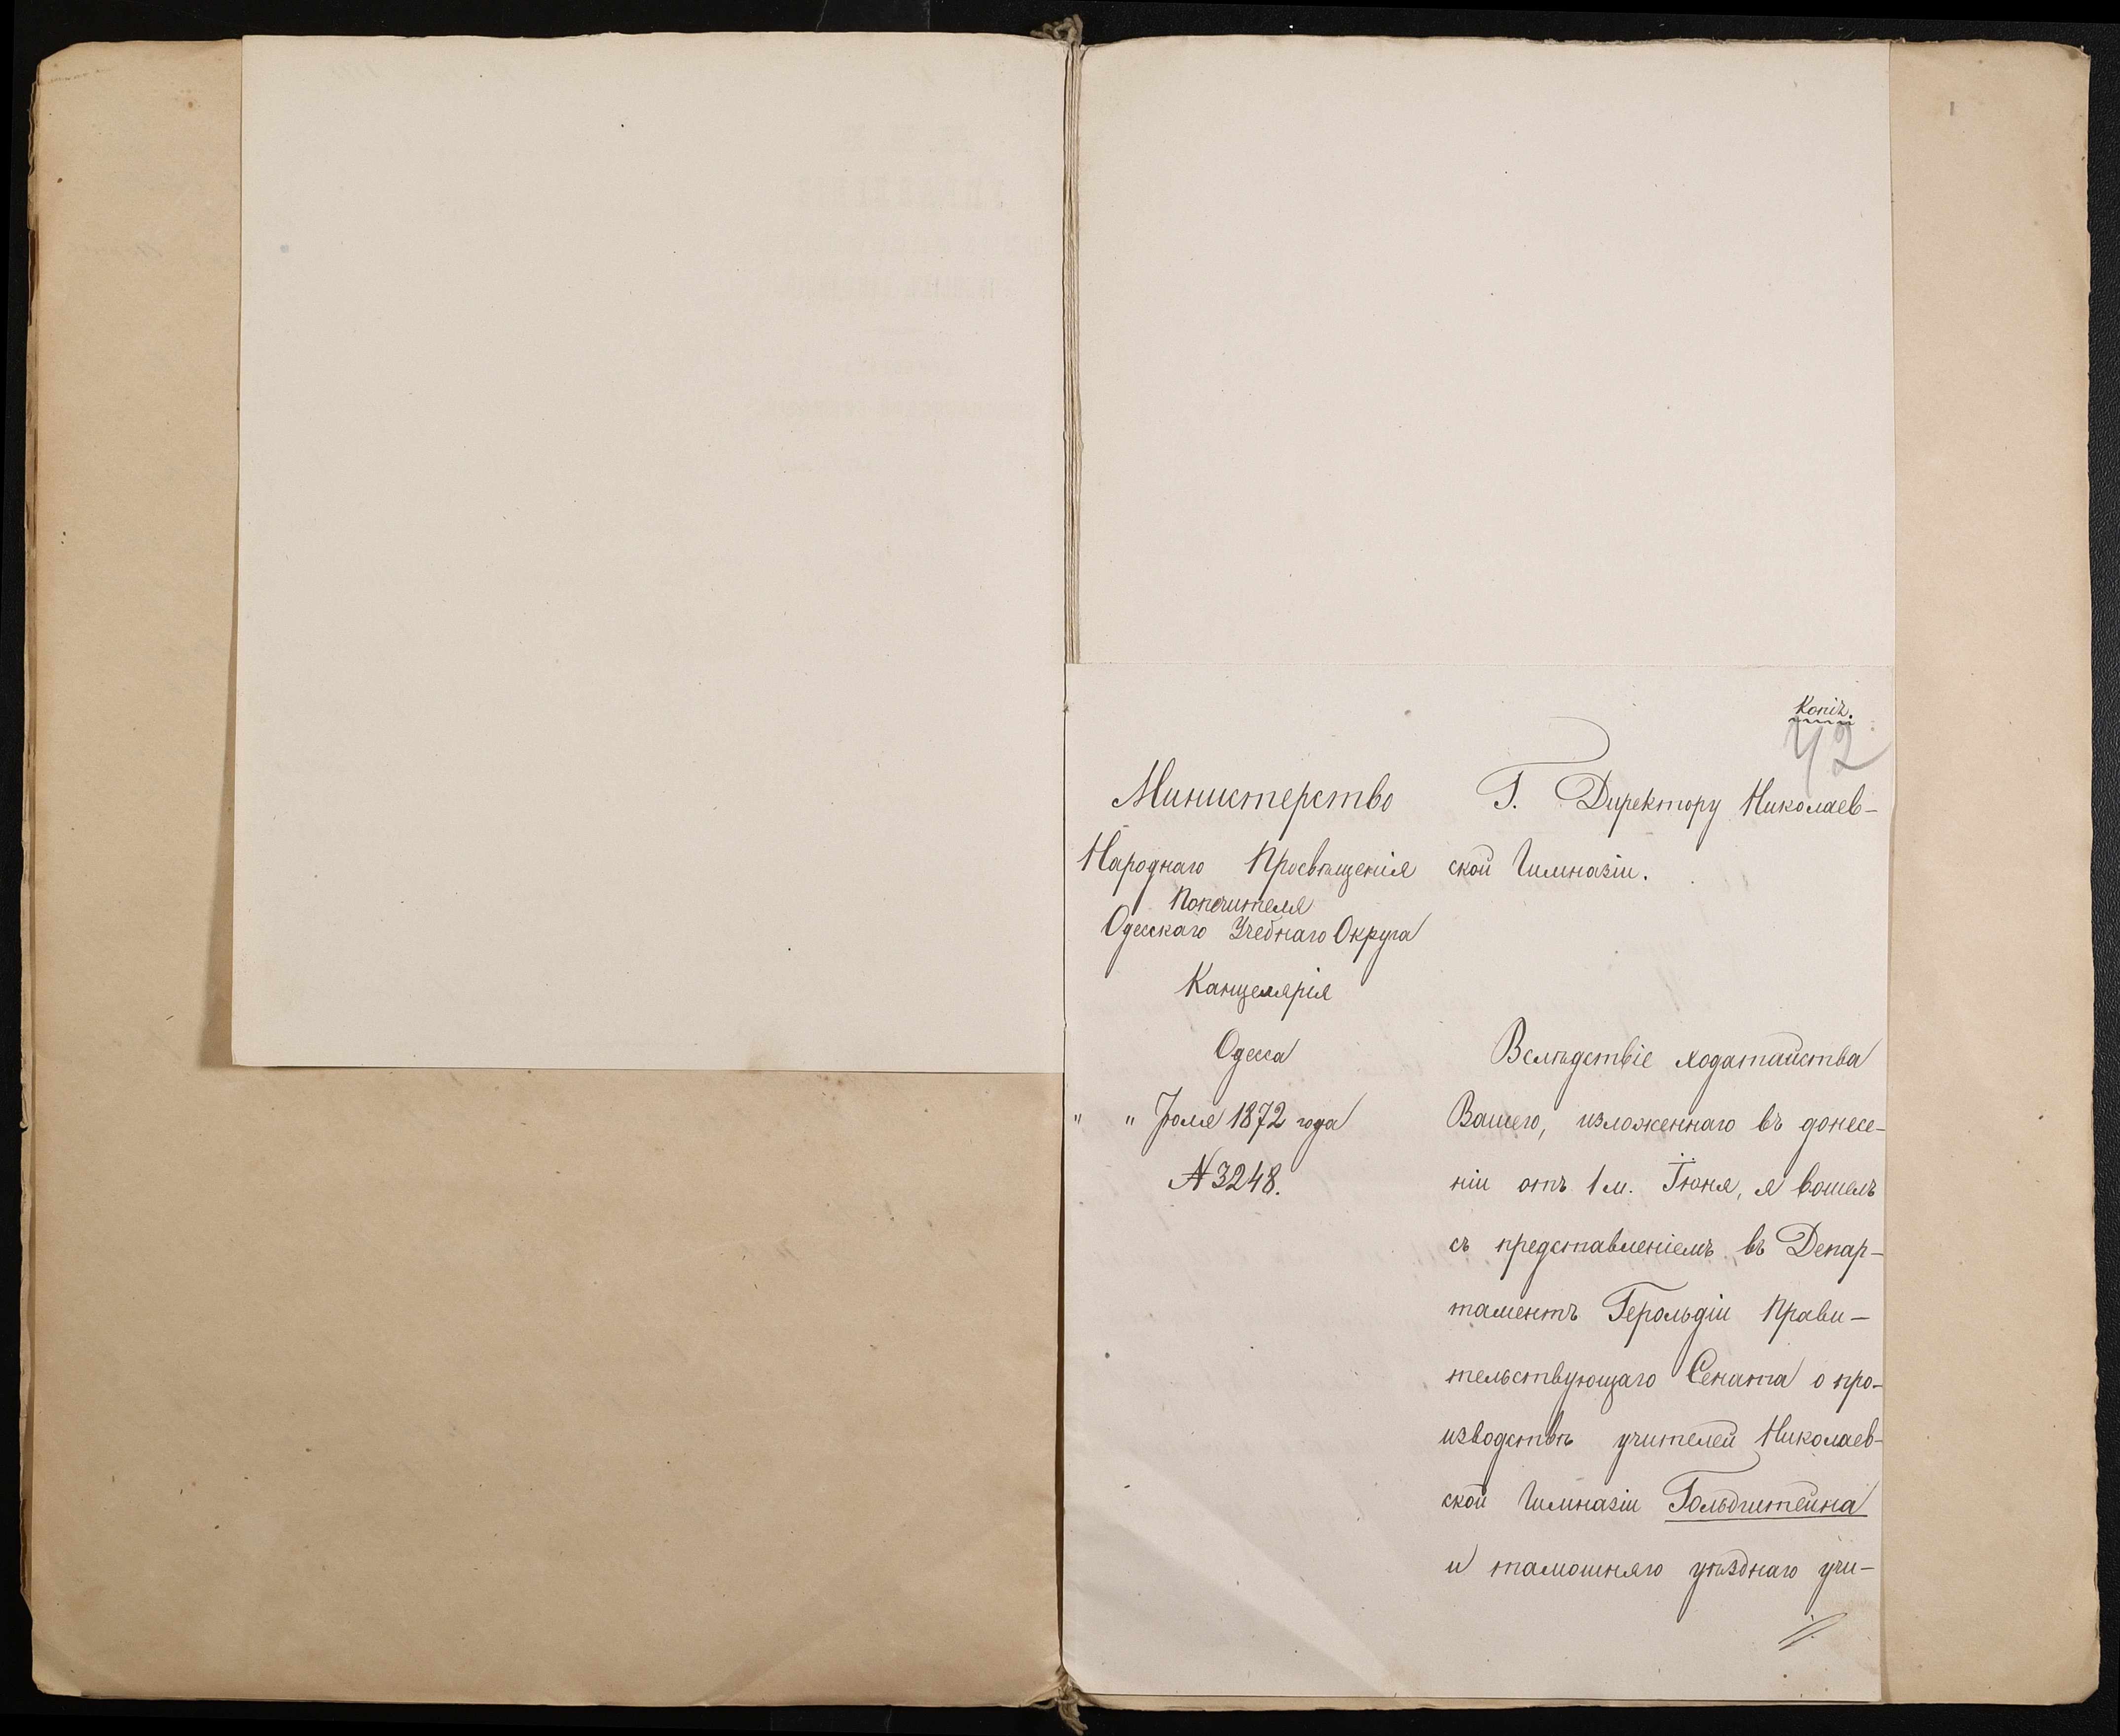 Копія.
42
Министерство
Народнаго Просвѣщенія
Попечителя
Одесскаго Учебнаго Округа
Канцелярія
Одесса
" " Іюля 1872 года
№ 3248.
Г. Директору Николаев-
ской Гимназіи.
Вслѣдствіе ходатайства
Вашего, изложеннаго въ донесе-
ніи отъ 1 м. Іюня, я вошелъ
съ представленіемъ въ Депар-
таментъ Герольдіи Прави-
тельствующаго Сената о про-
изводствѣ учителей Николаев-
ской Гимназіи Гольдштейна
и тамошняго уѣзднаго учи-